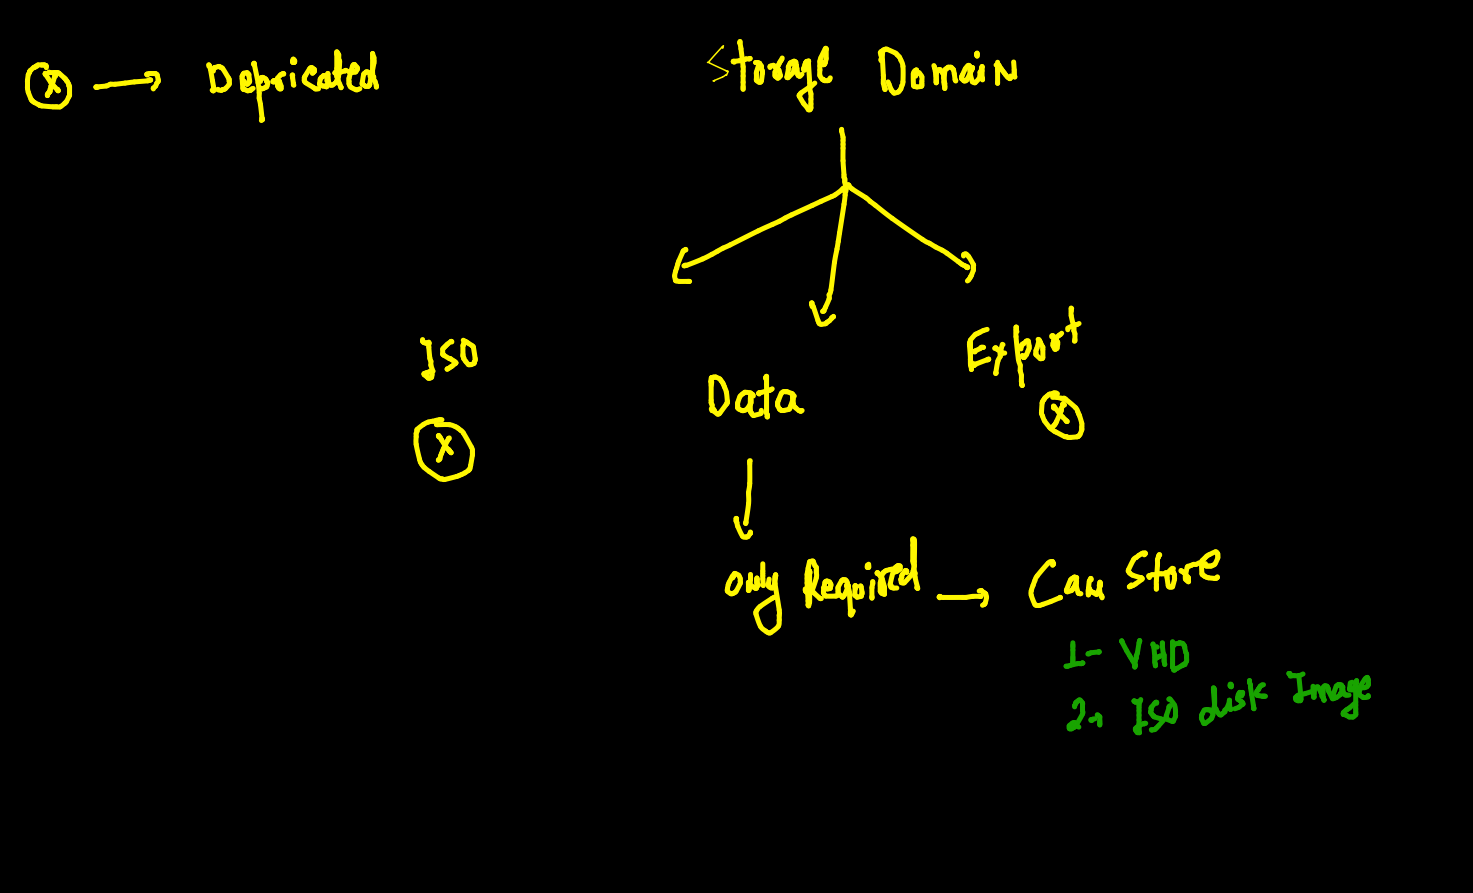 Ⓧ → Depricated
Storage Domain
ISO
Ⓧ
Data
Export
Ⓧ
only Required → Can Store
1- VHD
2. ISO disk Image